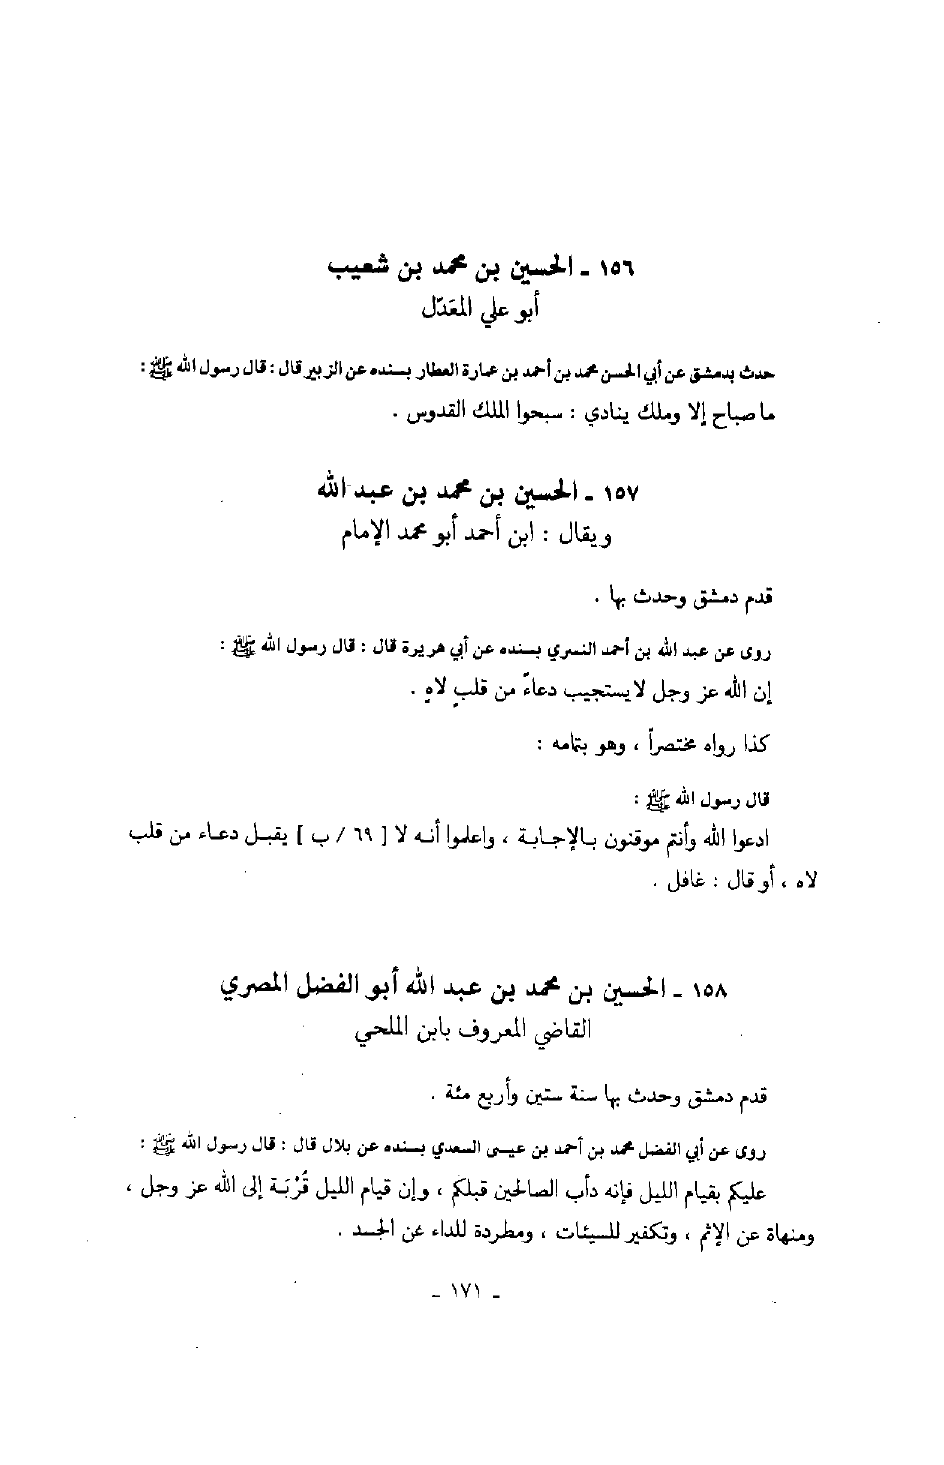 ١٥٦ ـ الحسين بن محمد بن شعيب
أبو علي المعَدّل
حدث بدمشق عن أبي الحسن محمد بن أحمد بن عمارة العطار بسنده عن الزبير قال : قال رسول الله ﷺ :
ما صباح إلا وملك ينادي : سبحوا الملك القدوس .
١٥٧ ـ الحسين بن محمد بن عبد الله
ويقال : ابن أحمد أبو محمد الإمام
قدم دمشق وحدث بها .
روى عن عبد الله بن أحمد النسري بسنده عن أبي هريرة قال : قال رسول الله ﷺ :
إن الله عز وجل لا يستجيب دعاءً من قلبٍ لاهٍ .
كذا رواه مختصراً ، وهو بتمامه :
قال رسول الله ﷺ :
ادعوا الله وأنتم موقنون بالإجابة ، واعلموا أنه لا [ ٦٩ / ب ] يقبل دعاء من قلب
لاه ، أو قال : غافل .
١٥٨ ـ الحسين بن محمد بن عبد الله أبو الفضل المصري
القاضي المعروف بابن الملحي
قدم دمشق وحدث بها سنة ستين وأربع مئة .
روى عن أبي الفضل محمد بن أحمد بن عيسى السعدي بسنده عن بلال قال : قال رسول الله ﷺ :
عليكم بقيام الليل فإنه دأب الصالحين قبلكم ، وإن قيام الليل قُرْبَة إلى الله عز وجل ،
ومنهاة عن الإثم ، وتكفير للسيئات ، ومطردة للداء عن الجسد .
ـ ١٧١ ـ